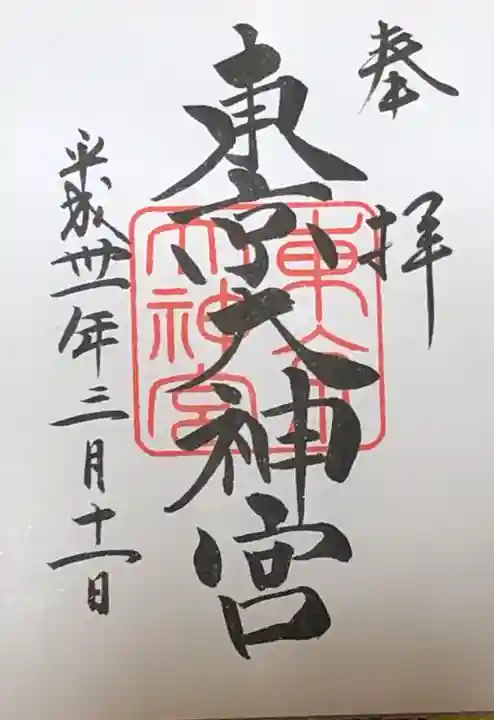 奉拝
東京大神宮
東京大神宮
平成卅一年三月十一日